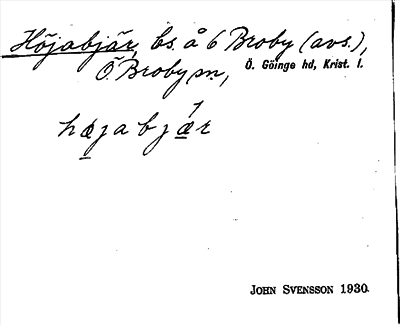 Höjabjär, bs. å 6 Broby (avs.),
Ö. Broby sn, Ö. Göinge hd, Krist. l.
højabjær
John Svensson 1930.